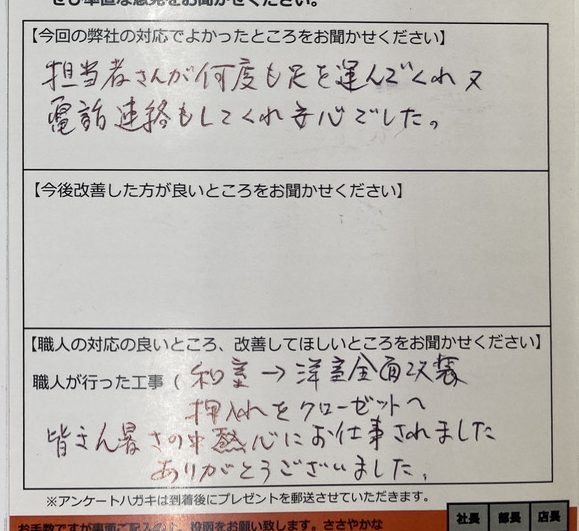 ぜひ率直な意見をお聞かせください。
【今回の弊社の対応でよかったところをお聞かせください】
担当者さんが何度も足を運んでくれ又
電話連絡もしてくれ安心でした。
【今後改善した方が良いところをお聞かせください】
【職人の対応の良いところ、改善してほしいところをお聞かせください】
職人が行った工事（和室→洋室全面改装
押入れをクローゼットへ
皆さん暑さの中熱心にお仕事されました
ありがとうございました。
※アンケートハガキは到着後にプレゼントを郵送させていただきます。
お手数ですが裏面ご記入の上、投函をお願い致します。ささやかな
社長 部長 店長